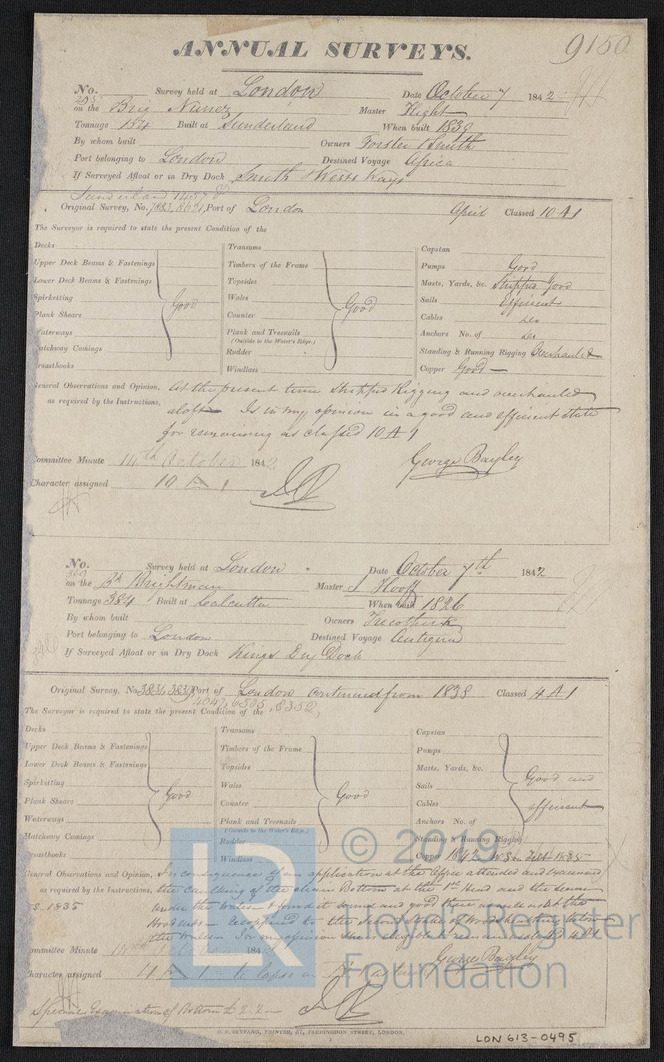 ANNUAL SURVEYS.
9150
No. Survey held at London Date October 7 1842
on the Brig Nunez Master Hight
Tonnage 154 Built at Sunderland When built 1839
By whom built Owners Forster & Smith
Port belonging to London Destined Voyage Africa
If Surveyed Afloat or in Dry Dock Smith Wests Ways
Sunderland
Original Survey, No. Port of London April Classed 10 A 1
The Surveyor is required to state the present Condition of the
Decks Transoms Capstan
Upper Deck Beams & Fastenings Timbers of the Frame Pumps Good
Lower Deck Beams & Fastenings Topsides Masts, Yards, &c. Stripped Good
Spirketting Good Wales Good Sails Efficient
Plank Shears Counter Cables Do
Waterways Plank and Treenails Anchors No. of Do
(Outside to the Water's Edge.)
Hatchway Comings Rudder Standing & Running Rigging Overhauled
Breasthooks Windlass Copper Good
General Observations and Opinion, At the present time Stripped Rigging and overhauled
as required by the Instructions, aloft Is in my opinion in a good and efficient state
for remaining as classed 10 A 1
Committee Minute 14th October 1842 George Bayley
Character assigned 10 A 1
No. Survey held at London Date October 7th 1842
on the Bk Brightman Master J Hooff
Tonnage 384 Built at Calcutta When built 1826
By whom built Owners
Port belonging to London Destined Voyage Antigua
If Surveyed Afloat or in Dry Dock Kings Dry Dock
Original Survey, No. 3834, Port of London continued from 1838 Classed 4 A 1
4047, 6505, 8352,
The Surveyor is required to state the present Condition of the
Decks Transoms Capstan
Upper Deck Beams & Fastenings Timbers of the Frame Pumps
Lower Deck Beams & Fastenings Topsides Masts, Yards, &c. Good and
Spirketting Good Wales Good Sails
Plank Shears Counter Cables efficient
Waterways Plank and Treenails Anchors No. of
(Outside to the Water's Edge.)
Hatchway Comings Rudder Standing & Running Rigging
Breasthooks Windlass Copper 1842
General Observations and Opinion, In consequence of an application at the Office attended and examined
as required by the Instructions, the caulking of the clean Bottom at the 1st Head and the Seams
1835 under the Wales & found it sound and good
the Wales. In my opinion
Committee Minute 184
Character assigned 4 A 1 George Bayley
Special Examination of Bottom £2.2
PRINTER, 87, FARRINGDON STREET, LONDON.
LON 613-0495
© 2019
LR
Lloyd's Register
Foundation